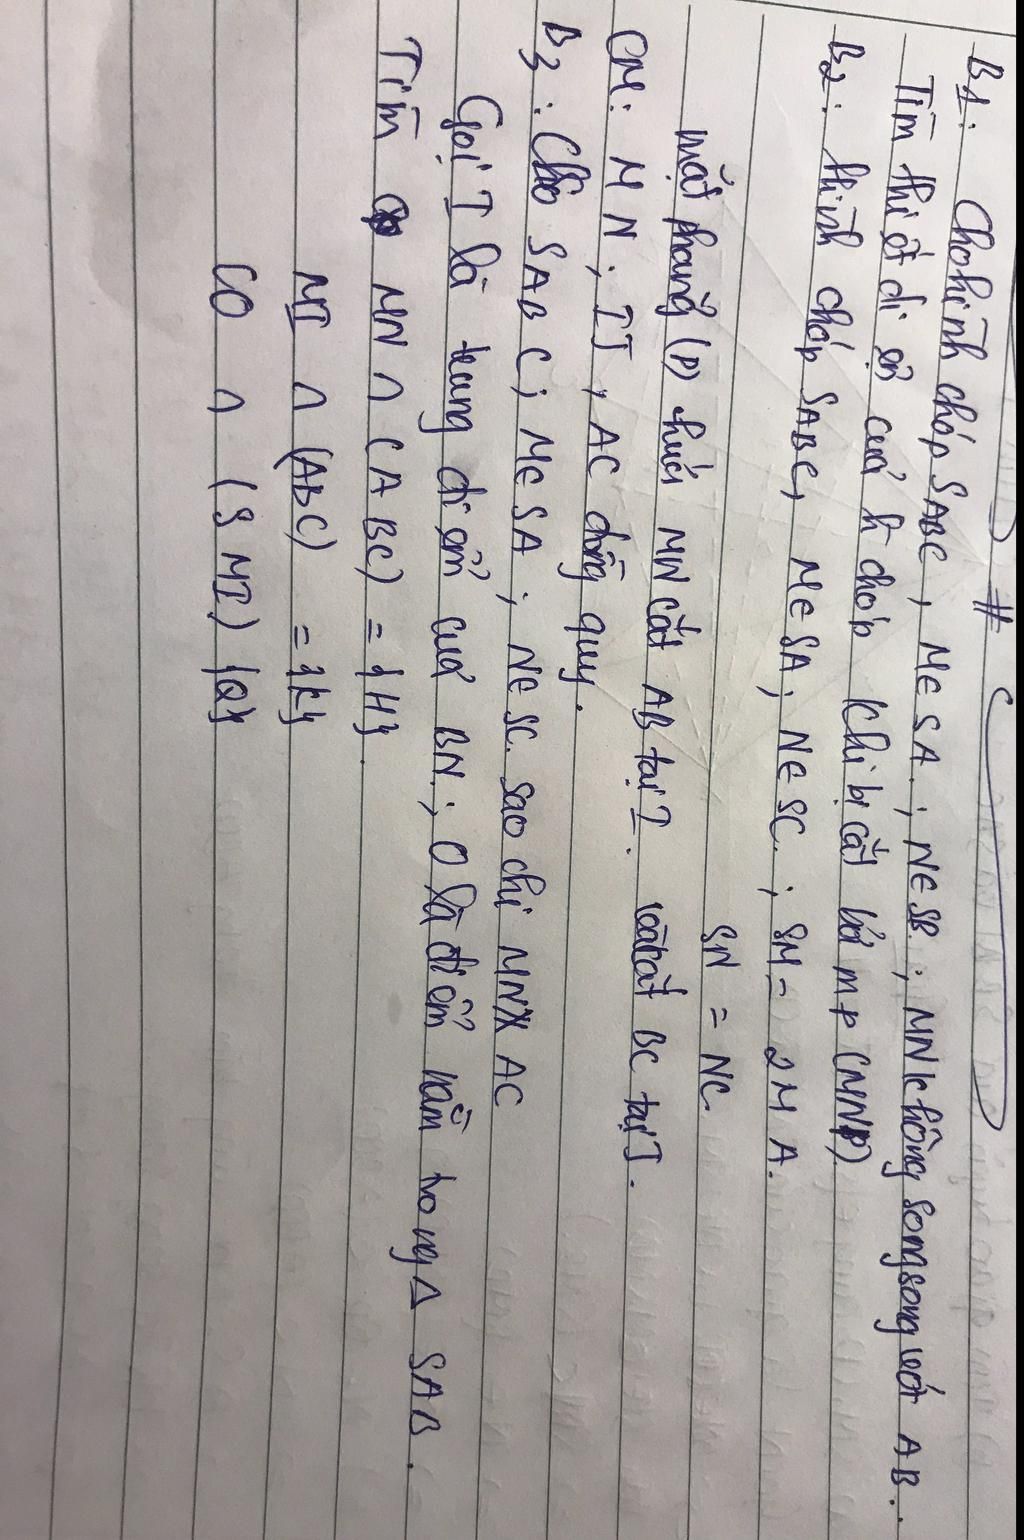 B1: Cho hình chóp SABC, M∈SA; N∈SB; MN không song song với AB.
Tìm thiết diện của h chóp khi bị cắt bởi mp (MNP)
B2: hình chóp SABC, M∈SA; N∈SC; SM = 2MA.
SN = NC.
mặt phẳng (P) chứa MN cắt AB tại I. và cắt BC tại J.
CM: MN; IJ, AC đồng quy.
B3: Cho SABC; M∈SA; N∈SC. sao cho MN∦AC
Gọi I là trung điểm của BN; O là điểm nằm trong Δ SAB.
Tìm MN ∩ (ABC) = {H}.
MI ∩ (ABC) = {K}
CO ∩ (SMI) {Q}